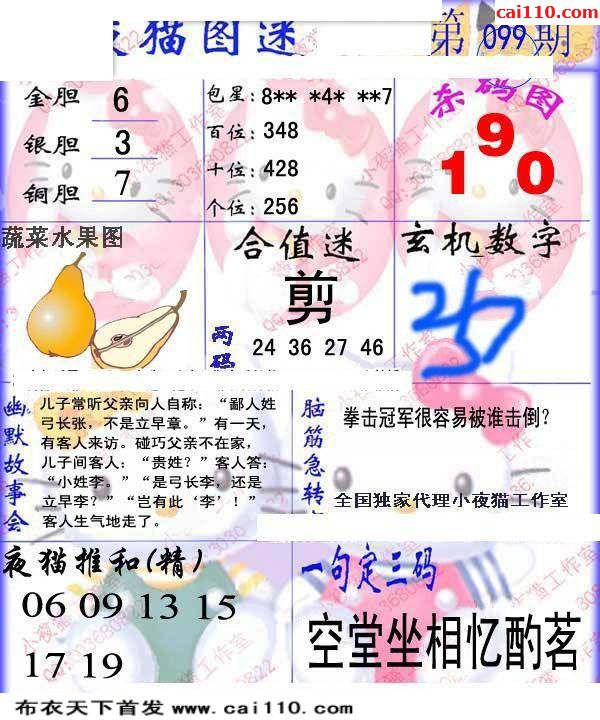 cai110.com
夜猫图迷
第099期
金胆 6
银胆 3
铜胆 7
包星: 8** *4* **7
百位: 348
十位: 428
个位: 256
杀码图
190
蔬菜水果图
合值迷
剪
两码
24 36 27 46
玄机数字
257
幽默故事会
儿子常听父亲向人自称：“鄙人姓
弓长张，不是立早章。”有一天，
有客人来访。碰巧父亲不在家，
儿子间客人：“贵姓？”客人答：
“小姓李。”“是弓长李，还是
立早李？”“岂有此‘李’！”
客人生气地走了。
脑筋急转
拳击冠军很容易被谁击倒?
全国独家代理小夜猫工作室
夜猫推和(精)
06 09 13 15
17 19
一句定三码
空堂坐相忆酌茗
布衣天下首发 www.cai110.com